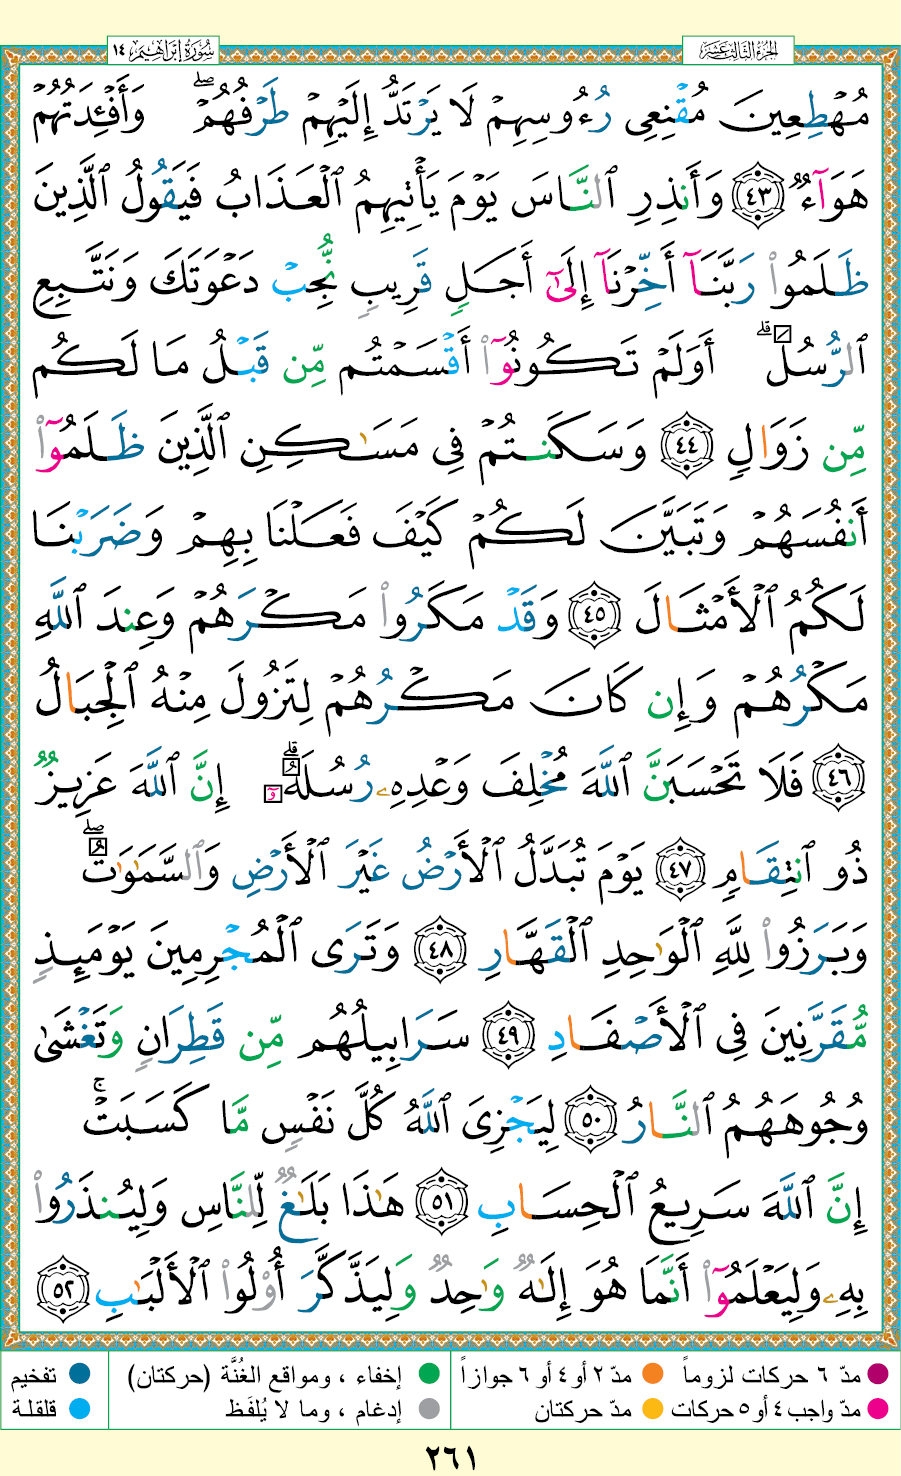 سُورَةُ إِبْرَاهِيم ١٤
الجُزْءُ الثَّالِث عَشَر
مُهْطِعِينَ مُقْنِعِى رُءُوسِهِمْ لَا يَرْتَدُّ إِلَيْهِمْ طَرْفُهُمْ ۖ وَأَفْـِٔدَتُهُمْ
هَوَآءٌ ﴿٤٣﴾ وَأَنذِرِ ٱلنَّاسَ يَوْمَ يَأْتِيهِمُ ٱلْعَذَابُ فَيَقُولُ ٱلَّذِينَ
ظَلَمُوا۟ رَبَّنَآ أَخِّرْنَآ إِلَىٰٓ أَجَلٍ قَرِيبٍ نُّجِبْ دَعْوَتَكَ وَنَتَّبِعِ
ٱلرُّسُلَ ۗ أَوَلَمْ تَكُونُوٓا۟ أَقْسَمْتُم مِّن قَبْلُ مَا لَكُم
مِّن زَوَالٍ ﴿٤٤﴾ وَسَكَنتُمْ فِى مَسَـٰكِنِ ٱلَّذِينَ ظَلَمُوٓا۟
أَنفُسَهُمْ وَتَبَيَّنَ لَكُمْ كَيْفَ فَعَلْنَا بِهِمْ وَضَرَبْنَا
لَكُمُ ٱلْأَمْثَالَ ﴿٤٥﴾ وَقَدْ مَكَرُوا۟ مَكْرَهُمْ وَعِندَ ٱللَّهِ
مَكْرُهُمْ وَإِن كَانَ مَكْرُهُمْ لِتَزُولَ مِنْهُ ٱلْجِبَالُ
﴿٤٦﴾ فَلَا تَحْسَبَنَّ ٱللَّهَ مُخْلِفَ وَعْدِهِۦ رُسُلَهُۥٓ ۗ إِنَّ ٱللَّهَ عَزِيزٌ
ذُو ٱنتِقَامٍ ﴿٤٧﴾ يَوْمَ تُبَدَّلُ ٱلْأَرْضُ غَيْرَ ٱلْأَرْضِ وَٱلسَّمَـٰوَٰتُ ۖ
وَبَرَزُوا۟ لِلَّهِ ٱلْوَٰحِدِ ٱلْقَهَّارِ ﴿٤٨﴾ وَتَرَى ٱلْمُجْرِمِينَ يَوْمَئِذٍ
مُّقَرَّنِينَ فِى ٱلْأَصْفَادِ ﴿٤٩﴾ سَرَابِيلُهُم مِّن قَطِرَانٍ وَتَغْشَىٰ
وُجُوهَهُمُ ٱلنَّارُ ﴿٥٠﴾ لِيَجْزِىَ ٱللَّهُ كُلَّ نَفْسٍ مَّا كَسَبَتْ ۚ
إِنَّ ٱللَّهَ سَرِيعُ ٱلْحِسَابِ ﴿٥١﴾ هَـٰذَا بَلَـٰغٌ لِّلنَّاسِ وَلِيُنذَرُوا۟
بِهِۦ وَلِيَعْلَمُوٓا۟ أَنَّمَا هُوَ إِلَـٰهٌ وَٰحِدٌ وَلِيَذَّكَّرَ أُو۟لُوا۟ ٱلْأَلْبَـٰبِ ﴿٥٢﴾
مدّ ٦ حركات لزوماً مدّ ٢ أو ٤ أو ٦ جوازاً إخفاء ، ومواقع الغُنَّة (حركتان) تفخيم
مدّ واجب ٤ أو ٥ حركات مدّ حركتان إدغام ، وما لا يُلفَظ قلقلة
٢٦١